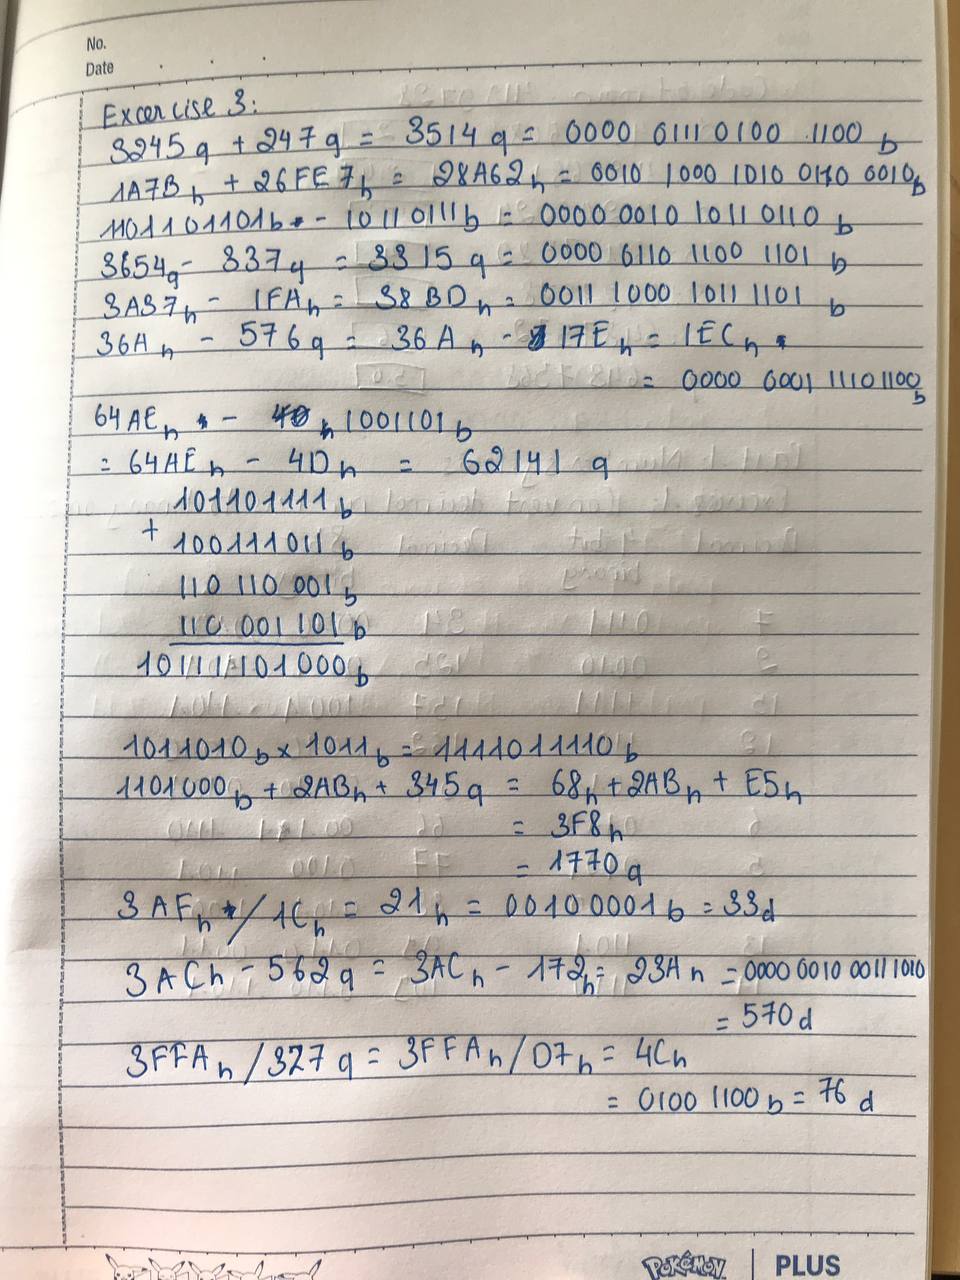 No.
Date
Excercise 3:
3245q + 247q = 3514q = 0000 0111 0100 1100 b
1A7Bh + 26FE7h = 28A62h = 0010 1000 1010 0110 0010b
1101101101b - 10110111b = 0000 0010 1011 0110 b
3654q - 337q = 3315q = 0000 0110 1100 1101 b
3A37h - 1FAh = 38BDh = 0011 1000 1011 1101 b
36Ah - 576q = 36Ah - 17Eh = 1ECh
= 0000 0001 11101100b
64AEh - 1001101b
= 64AEh - 4Dh = 62141 q
101101111b
+
100111011b
110 110 001b
110 001 101b
10111101000b
1011010b x 1011b = 1111011110b
1101000b + 2ABh + 345q = 68h + 2ABh + E5h
= 3F8h
= 1770q
3AFh / 1Ch = 21h = 00100001b = 33d
3ACh - 562q = 3ACh - 172h = 23Ah = 0000 0010 0011 1010
= 570d
3FFAh / 327q = 3FFAh / D7h = 4Ch
= 0100 1100 b = 76 d
POKéMON | PLUS